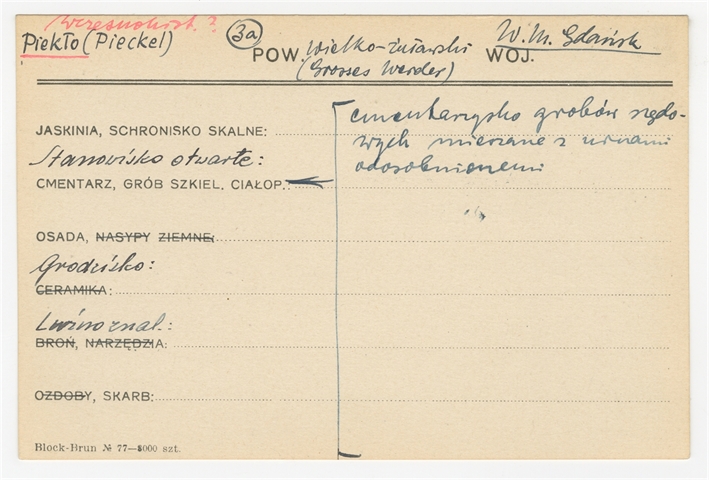 wczesnohist. ?
Piekło (Pieckel) 3a POW. Wielko-żuławski WOJ. W. M. Gdańsk
(Grosses Werder)
cmentarzysko grobów rzędo-
JASKINIA, SCHRONISKO SKALNE: wych mieszane z urnami
Stanowisko otwarte: odosobnionemi
CMENTARZ, GRÓB SZKIEL. CIAŁOP.:
OSADA, NASYPY ZIEMNE:
Grodzisko:
CERAMIKA:
Luźno znal.:
BROŃ, NARZĘDZIA:
OZDOBY, SKARB:
Block-Brun № 77—5000 szt.